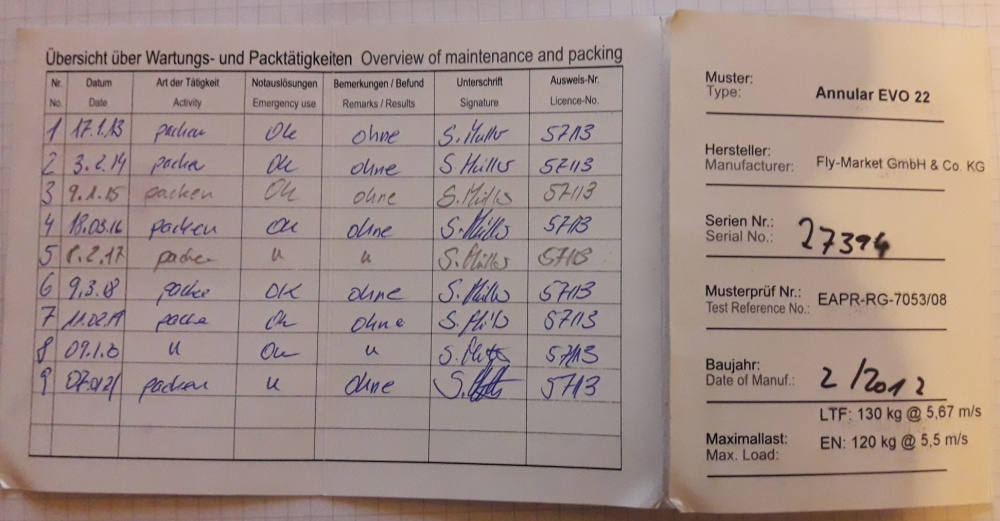 Übersicht über Wartungs- und Packtätigkeiten Overview of maintenance and packing
Nr. Datum Art der Tätigkeit Notauslösungen Bemerkungen / Befund Unterschrift Ausweis-Nr.
No. Date Activity Emergency use Remarks / Results Signature Licence-No.
1 17.1.13 packen Ok ohne S. Müller 57113
2 3.2.14 packen Ok ohne S. Müller 57113
3 9.1.15 packen Ok ohne S. Müller 57113
4 18.03.16 packen ok ohne S. Müller 57113
5 8.2.17 packen u u S. Müller 57113
6 9.3.18 packen OK ohne S. Müller 57113
7 11.02.19 packe Ok ohne S. Müller 57113
8 09.1. u Ok u S. 57113
9 packen u ohne S. 57113
Muster:
Type: Annular EVO 22
Hersteller:
Manufacturer: Fly-Market GmbH & Co. KG
Serien Nr.:
Serial No.: 27394
Musterprüf Nr.:
Test Reference No.: EAPR-RG-7053/08
Baujahr:
Date of Manuf.: 2/2012
LTF: 130 kg @ 5,67 m/s
Maximallast: EN: 120 kg @ 5,5 m/s
Max. Load: